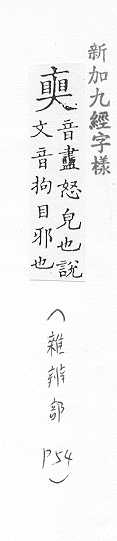 新加九經字樣
音盡怒皃也說
文音拘目邪也
（雜辨部 P54）